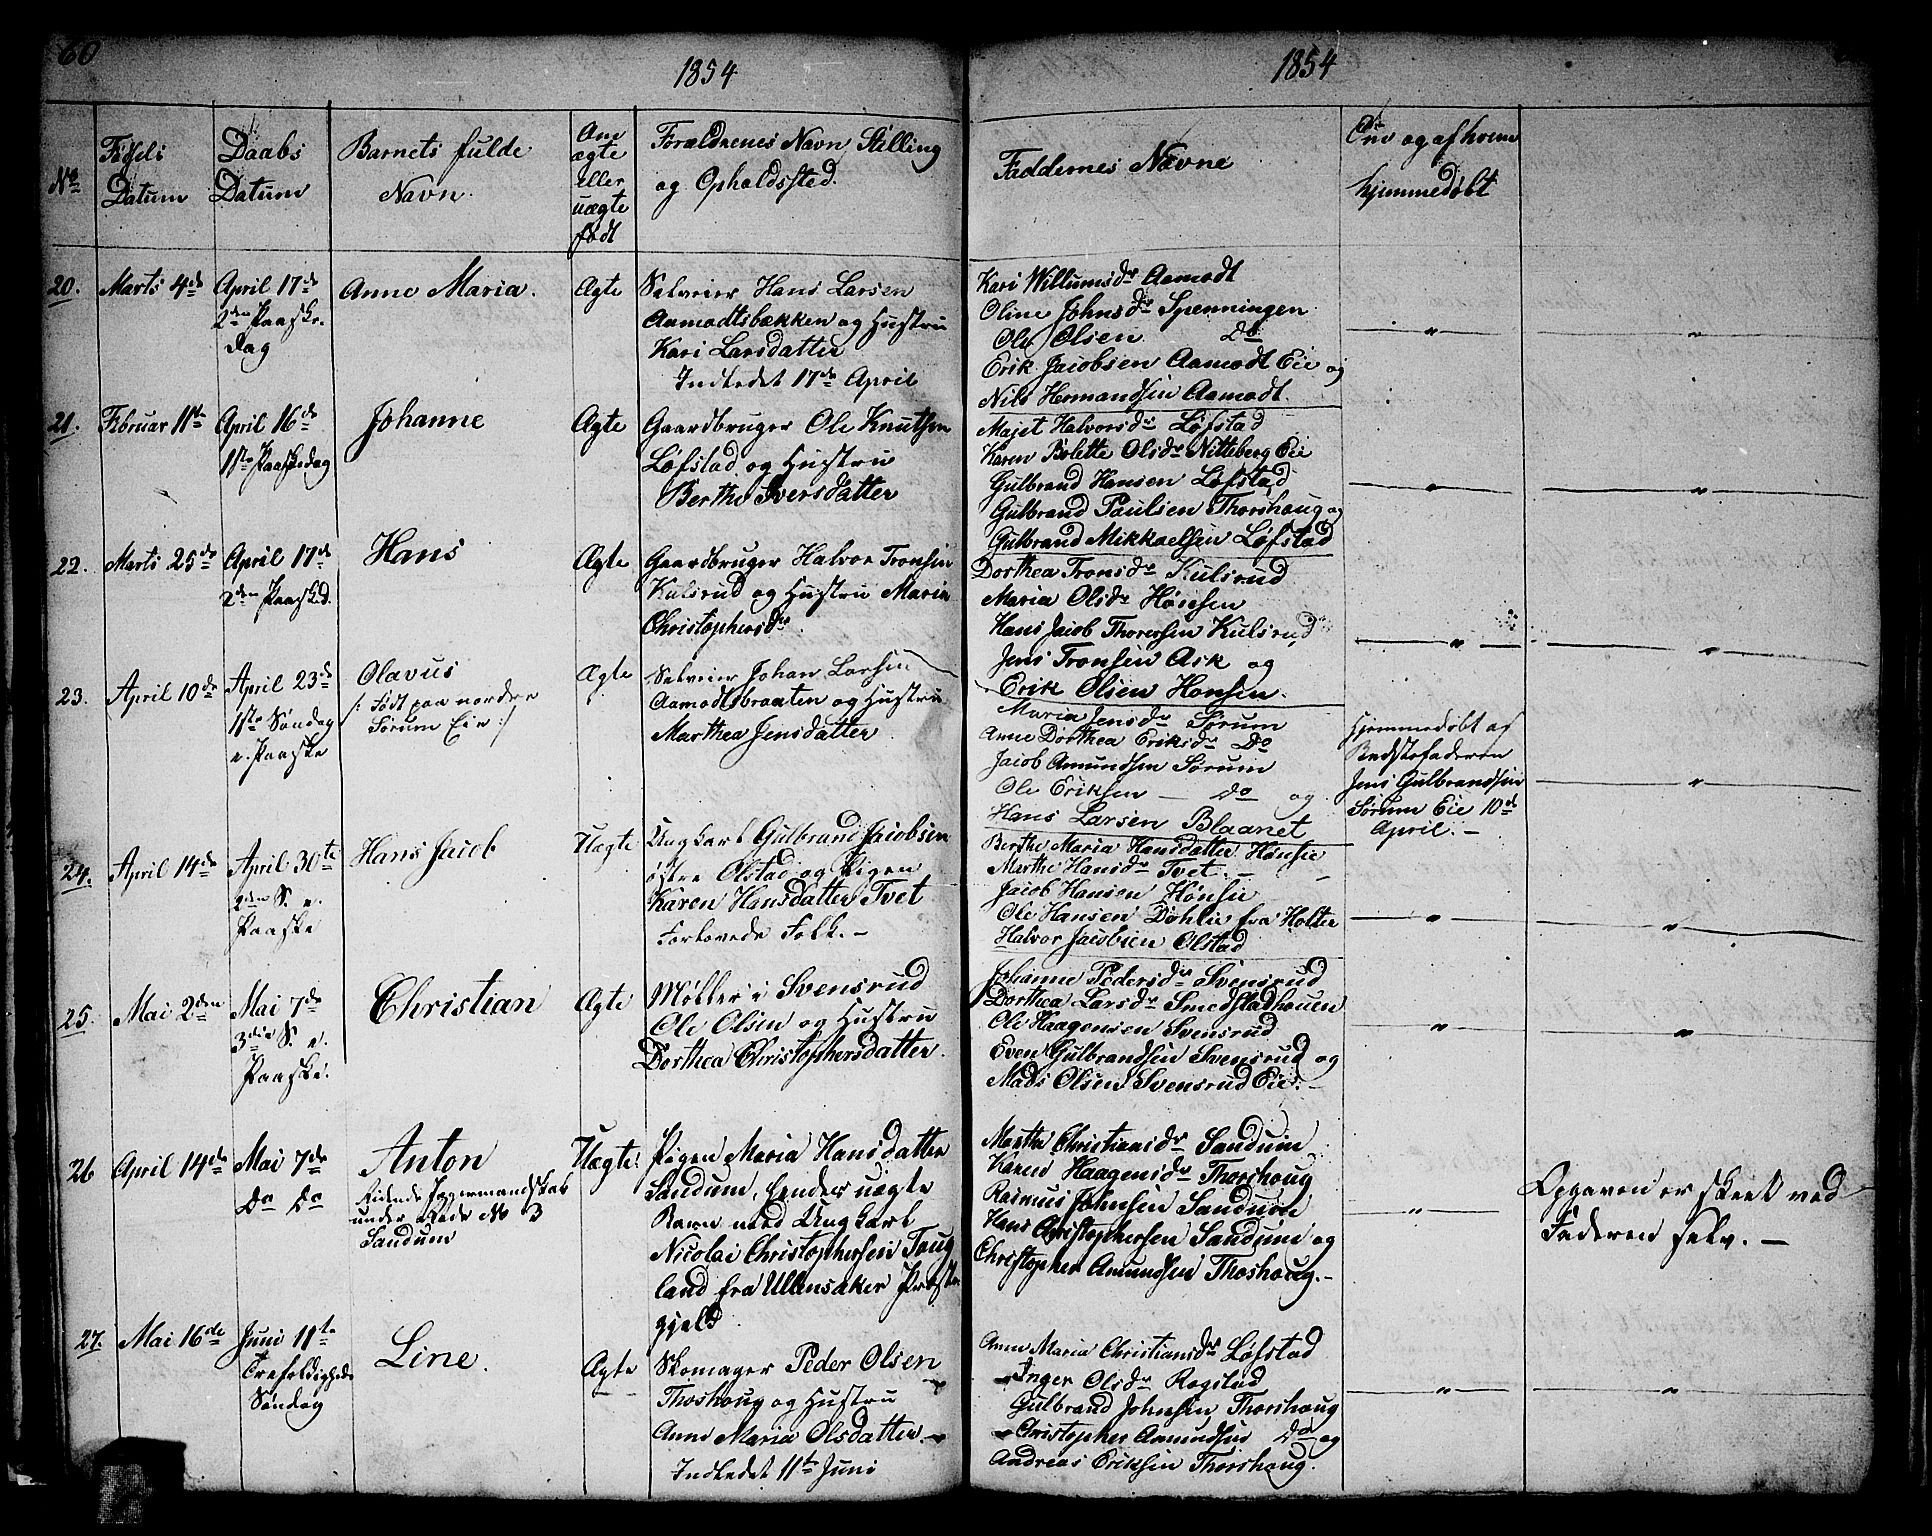 60
1854
1854
No
Fødsels
Datum
Daabs
Datum
Barnets fulde
Navn.
Om
ægte
eller
uægte
født
Forældrenes Navn Stilling
og Opholdssted.
Faddernes Navne
Om og af hvem
hjemmedøbt
20.
Marts 4de
April 17de
2den Paaske-
dag
Anne Maria.
Ægte
Selveier Hans Larsen
Aamodtsbækken og Hustru
Kari Larsdatter
Indledet 17de April
Kari Willumsdr Aamodt
Oline Johnsdr Spenningen
Ole Olsen Do
Erik Jacobsen Aamodt Eie og
Nils Hermandsen Aamodt.
21.
Februar 11te
April 16de
1ste Paaskedag
Johanne
Ægte
Gaardbruger Ole Knutsen
Løfstad og Hustru
Berthe Iversdatter
Majet Halvorsdr Løfstad
Karen Bolette Olsdr Nitteberg Eie
Gulbrand Hansen Løfstad
Gulbrand Paulsen Thorshoug og
Gulbrand Mikkaelsen Løfstad
22.
Marts 25de
April 17de
2den Paasked.
Hans
Ægte
Gaardbruger Halvor Tronsen
Kulsrud og Hustru Maria
Christophersdr
Dorthea Tronsdr Kulsrud
Maria Olsdr Hønsen
Hans Jacob Thoresen Kulsrud
Jens Tronsen Ask og
Erik Olsen Honsen.
23.
April 10de
April 23de
1ste Søndag
e. Paaske
Olavus
/: Født paa nordre
Sørum Eie :/
Ægte
Selveier Johan Larsen
Aamodtsbraaten og Hustru
Marthea Jensdatter
Maria Jensdr Sørum
Anne Dorthea Eriksdr Do
Jacob Amundsen Sørum
Ole Eriksen — do og
Hans Larsen Blaanet
Hjemmedøbt af
Bedstefaderen
Jens Gulbrandsen
Sørum Eie 10de
April. —
24.
April 14de
April 30te
2den S. e.
Paaske
Hans Jacob
Uægte
Ungkarl Gulbrand Jacobsen
østre Olstad og Pigen
Karen Hansdatter Tvet
Forlovede Folk. —
Berthe Maria Hansdatter Hønsie
Marthe Hansdr Tvet. —
Jacob Hansen Hønsie
Ole Hansen Døhlie fra Holter
Halvor Jacobsen Olstad
25.
Mai 2den
Mai 7de
3die S. e.
Paaske.
Christian
Ægte
Møller i Svensrud
Ole Olsen og Hustru
Dorthea Christophersdatter.
Johanne Pedersdr Svensrud
Dorthea Larsdr Smedstadhouen
Ole Haagensen Svensrud
Even Gulbrandsen Svensrud og
Mads Olsen Svensrud Eie. —
26
April 14de
Mai 7de
Do Do
Anton
Ridende Jægermandskab
under Rode No 3
Sandum
Uægte
Pigen Maria Hansdatter
Sandum, hendes uægte
Barn med Ungkarl
Nicolai Christophersen Toug
land fra Ullensaker Præste
gjeld
Marthe Christiansdr Sandum
Karen Haagensdr Thorshoug
Rasmus Johnsen Sandum
Hans Christophersen Sandum og
Christopher Amundsen Thoshoug. —
Opgaven er skeet ved
Faderen selv. —
27.
Mai 16de
Juni 11te
Trefoldigheds
Søndag
Line.
Ægte
Skomager Peder Olsen
Thoshoug og Hustru
Anne Maria Olsdatter. —
Indledet 11te Juni
Anne Maria Christiansdr Løfstad
Inger Olsdr Rogstad
Gulbrand Johnsen Thorshoug
Christopher Amundsen Do og
Andreas Eriksen Thorshoug.